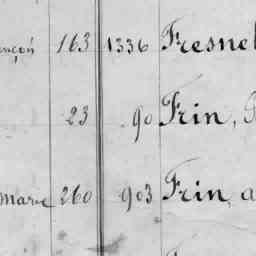 ençon 163 1336 Fresnel
23 90 Frin, P
Marne 260 903 Frin, a